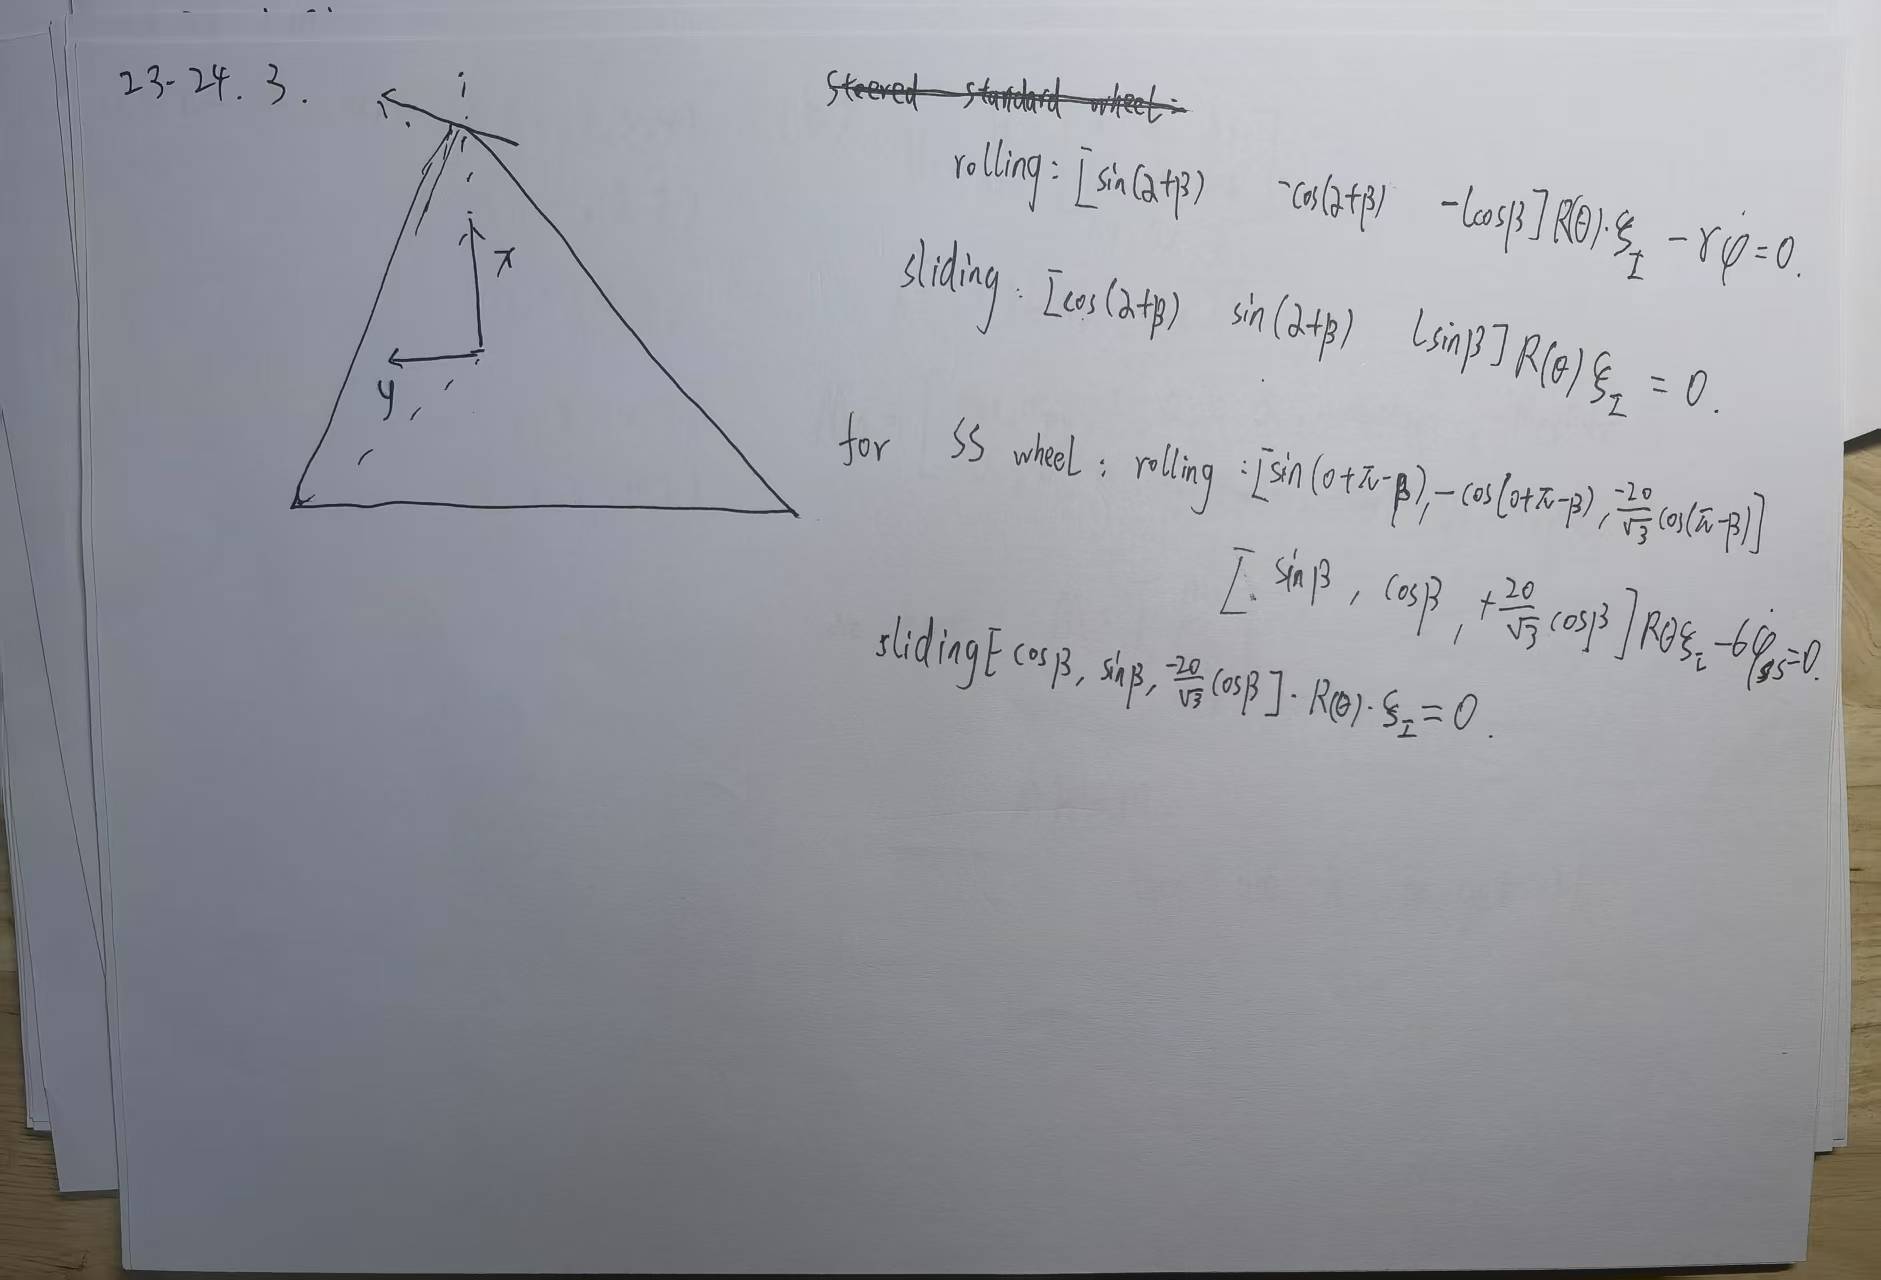 23-24. 3.
Steered standard wheel:
rolling: [sin(α+β) -cos(α+β) -lcosβ] R(θ)·ξ_I - rφ̇ = 0.
sliding: [cos(α+β) sin(α+β) lsinβ] R(θ) ξ_I = 0.
x
y
for SS wheel: rolling: [sin(0+π-β), -cos(0+π-β), -20/√3 cos(π-β)]
[sinβ, cosβ, +20/√3 cosβ] Rθξ_I - 6φ̇_ss = 0.
sliding [cosβ, sinβ, -20/√3 cosβ]· R(θ)·ξ_I = 0.